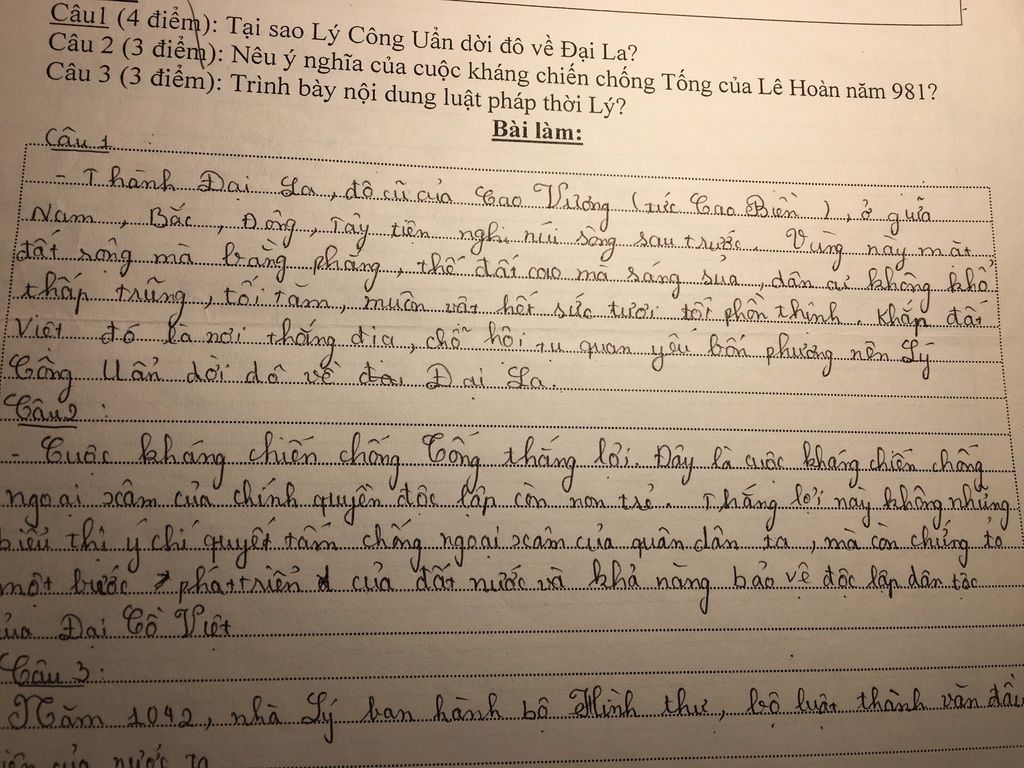 Câu1 (4 điểm): Tại sao Lý Công Uẩn dời đô về Đại La?
Câu 2 (3 điểm): Nêu ý nghĩa của cuộc kháng chiến chống Tống của Lê Hoàn năm 981?
Câu 3 (3 điểm): Trình bày nội dung luật pháp thời Lý?
Bài làm:
Câu 1
- Thành Đại La, đô cũ của Cao Vương (tức Cao Biền), ở giữa
Nam, Bắc, Đông, Tây tiện nghi núi sông sau trước. Vùng này mặt
đất rộng mà bằng phẳng, thế đất cao mà sáng sủa, dân cư không khổ
thấp trũng, tối tăm, muôn vật hết sức tươi tốt phồn thịnh. Khắp đất
Việt đó là nơi thắng địa, chỗ hội tụ quan yếu bốn phương nên Lý
Công Uẩn dời đô về Đại La.
Câu 2:
- Cuộc kháng chiến chống Tống thắng lợi. Đây là cuộc kháng chiến chống
ngoại xâm của chính quyền độc lập còn non trẻ. Thắng lợi này không những
biểu thị ý chí quyết tâm chống ngoại xâm của quân dân ta, mà còn chứng tỏ
một bước phát triển của đất nước và khả năng bảo vệ độc lập dân tộc
của Đại Cồ Việt
Câu 3:
Năm 1042, nhà Lý ban hành bộ Hình thư, bộ luật thành văn đầu
tiên của nước ta